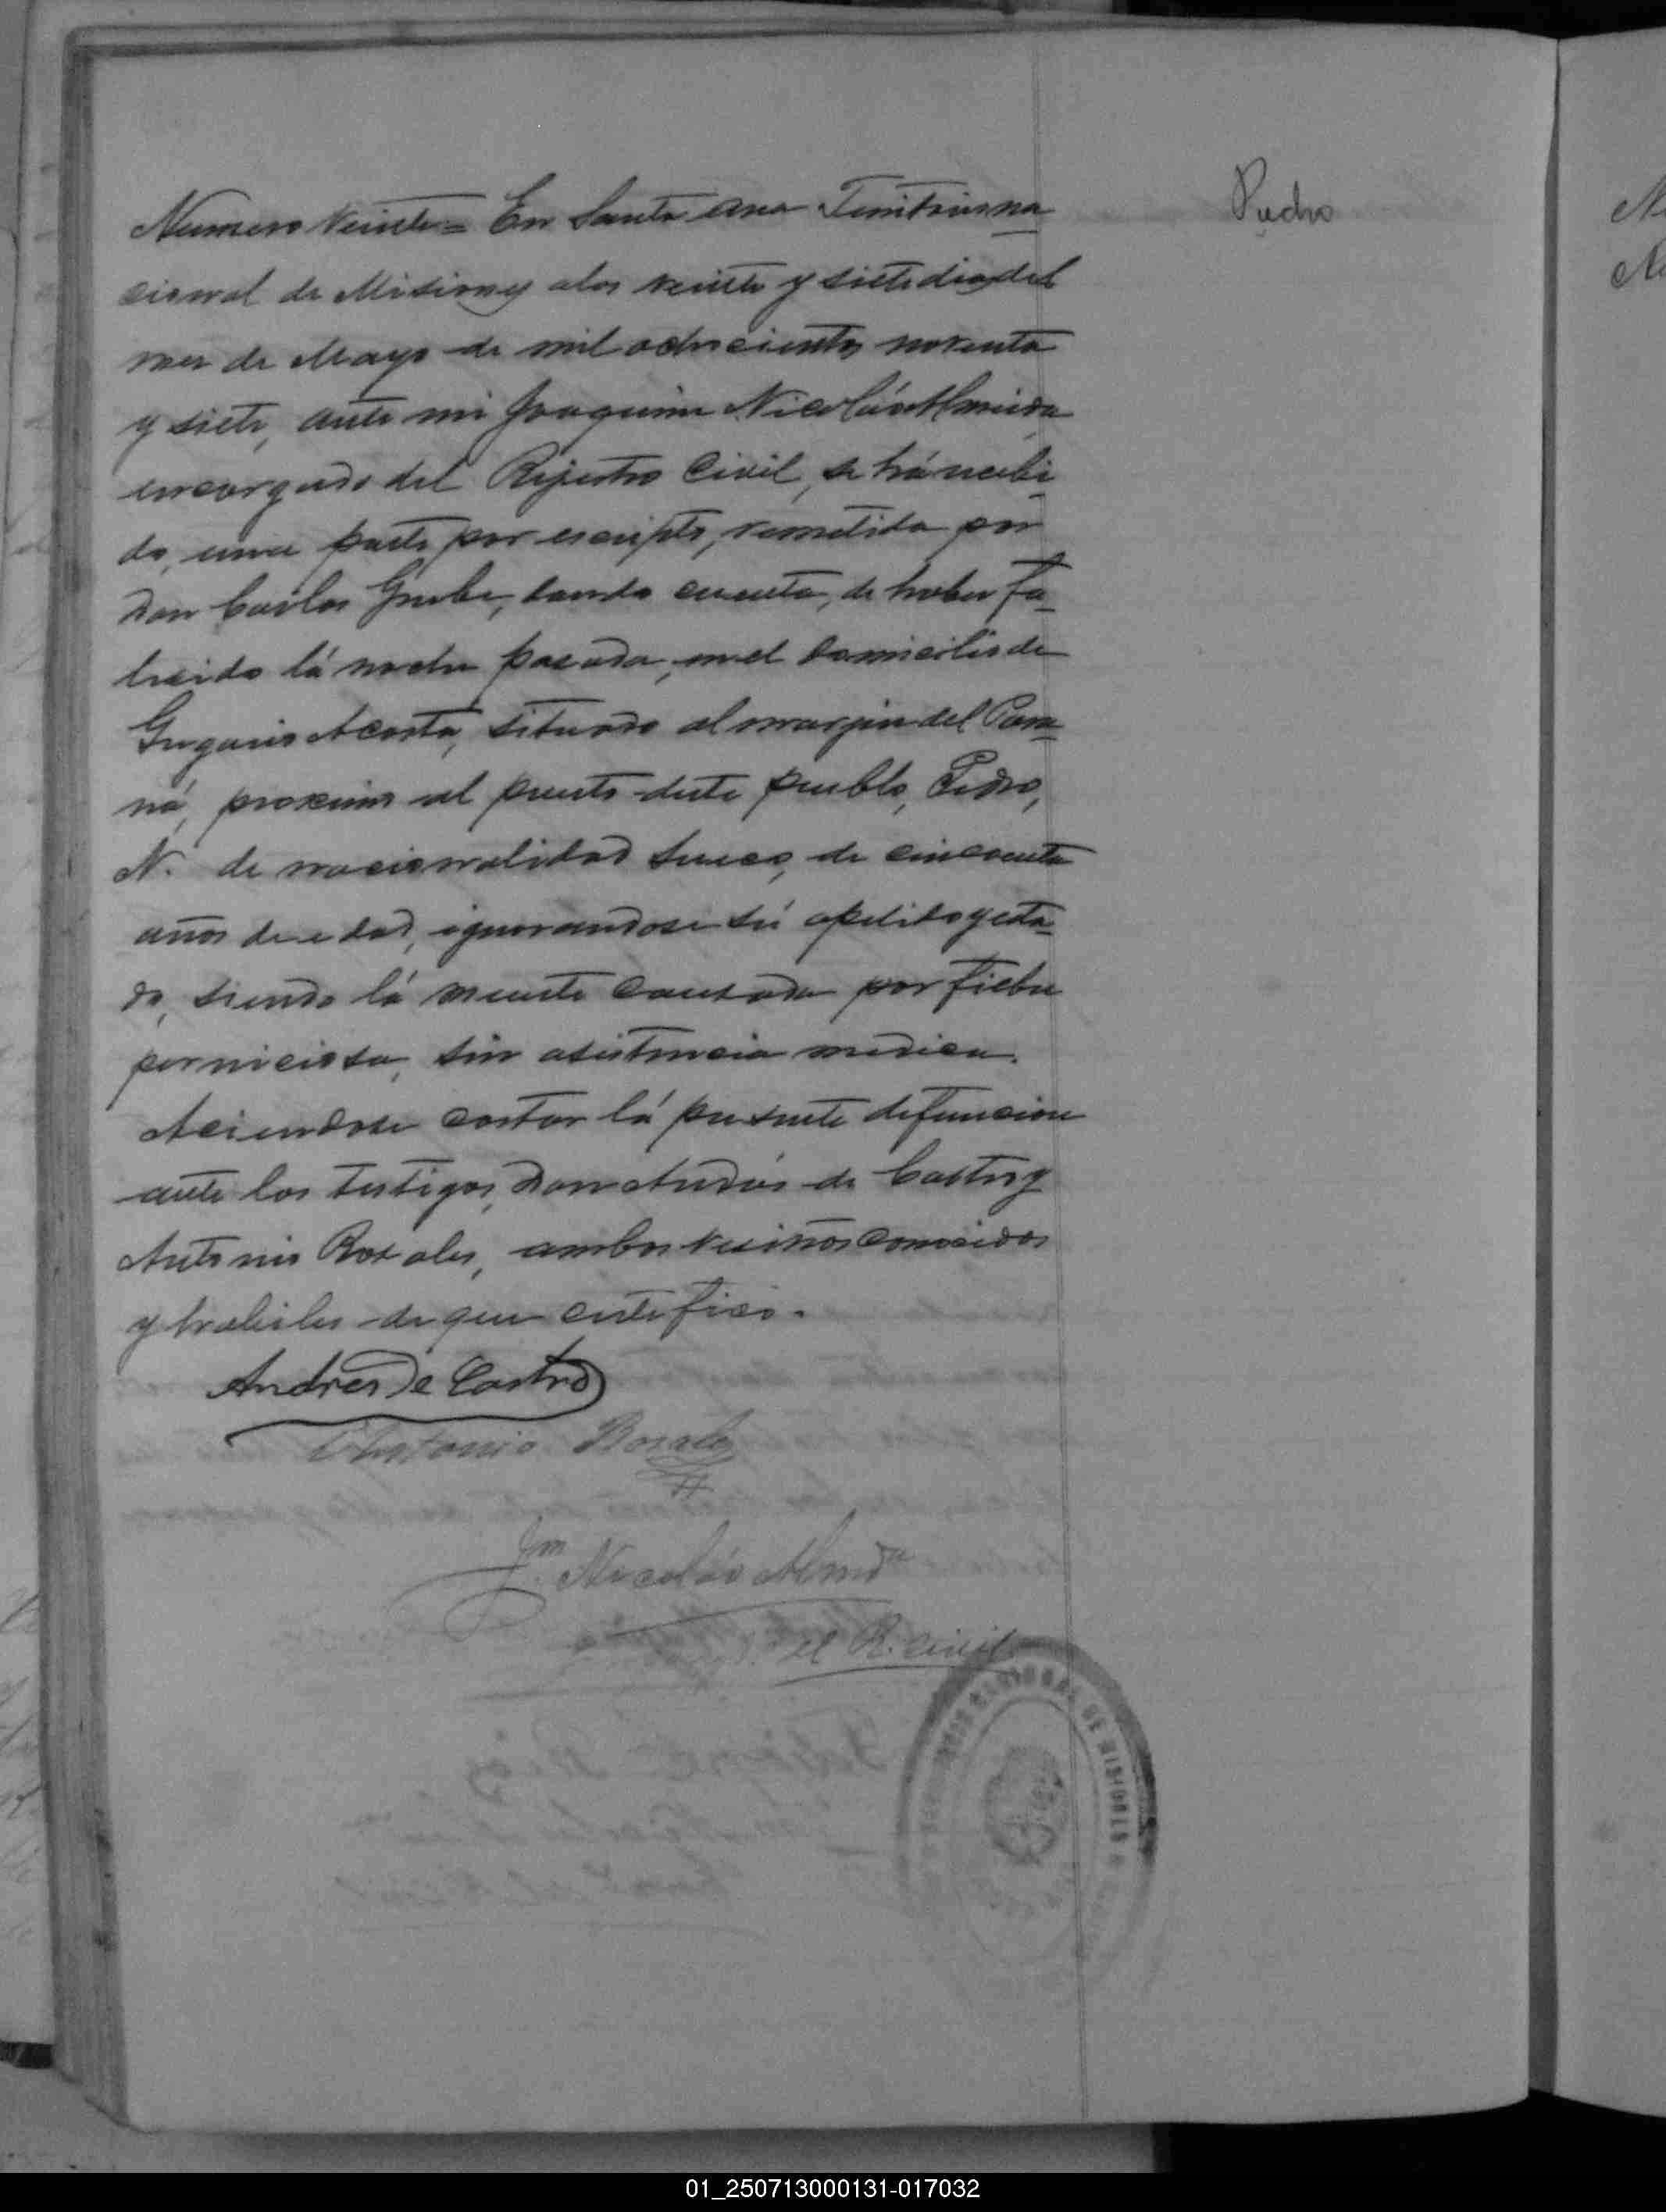 Numero Veinte = En Santa Ana Territorio na
cional de Misiones a los veinte y siete dias del
mes de Mayo de mil ochocientos noventa
y siete, ante mi Joaquim Nicolás Almeida
encargado del Rejistro Civil, se há recibi
do, una parte por escripto, remetida por
Don Carlos Grube, dando cuenta, de haber fa_
lecido lá noche pasada, en el domicilio de
Gregorio Acosta, situado al margin del Para
ná, proximo al puerto deste pueblo, Pedro,
N. de nacionalidad Sueco, de cincoenta
años de edad, ignorandose sú apelido y esta
do, siendo lá muerte causada por fiebre
perniciosa, sin asistencia medica.
Aciendose costar lá presente defuncion
ante los testigos, Don Andrés de Castro y
Antonio Rosales, ambos vecinos conocidos
y habiles de que certefico.
Andres de Castro
Antonio Rosales
Jm Nicolás Almda
el R. Civil
DE MISIONES
Pedro
01_250713000131-017032